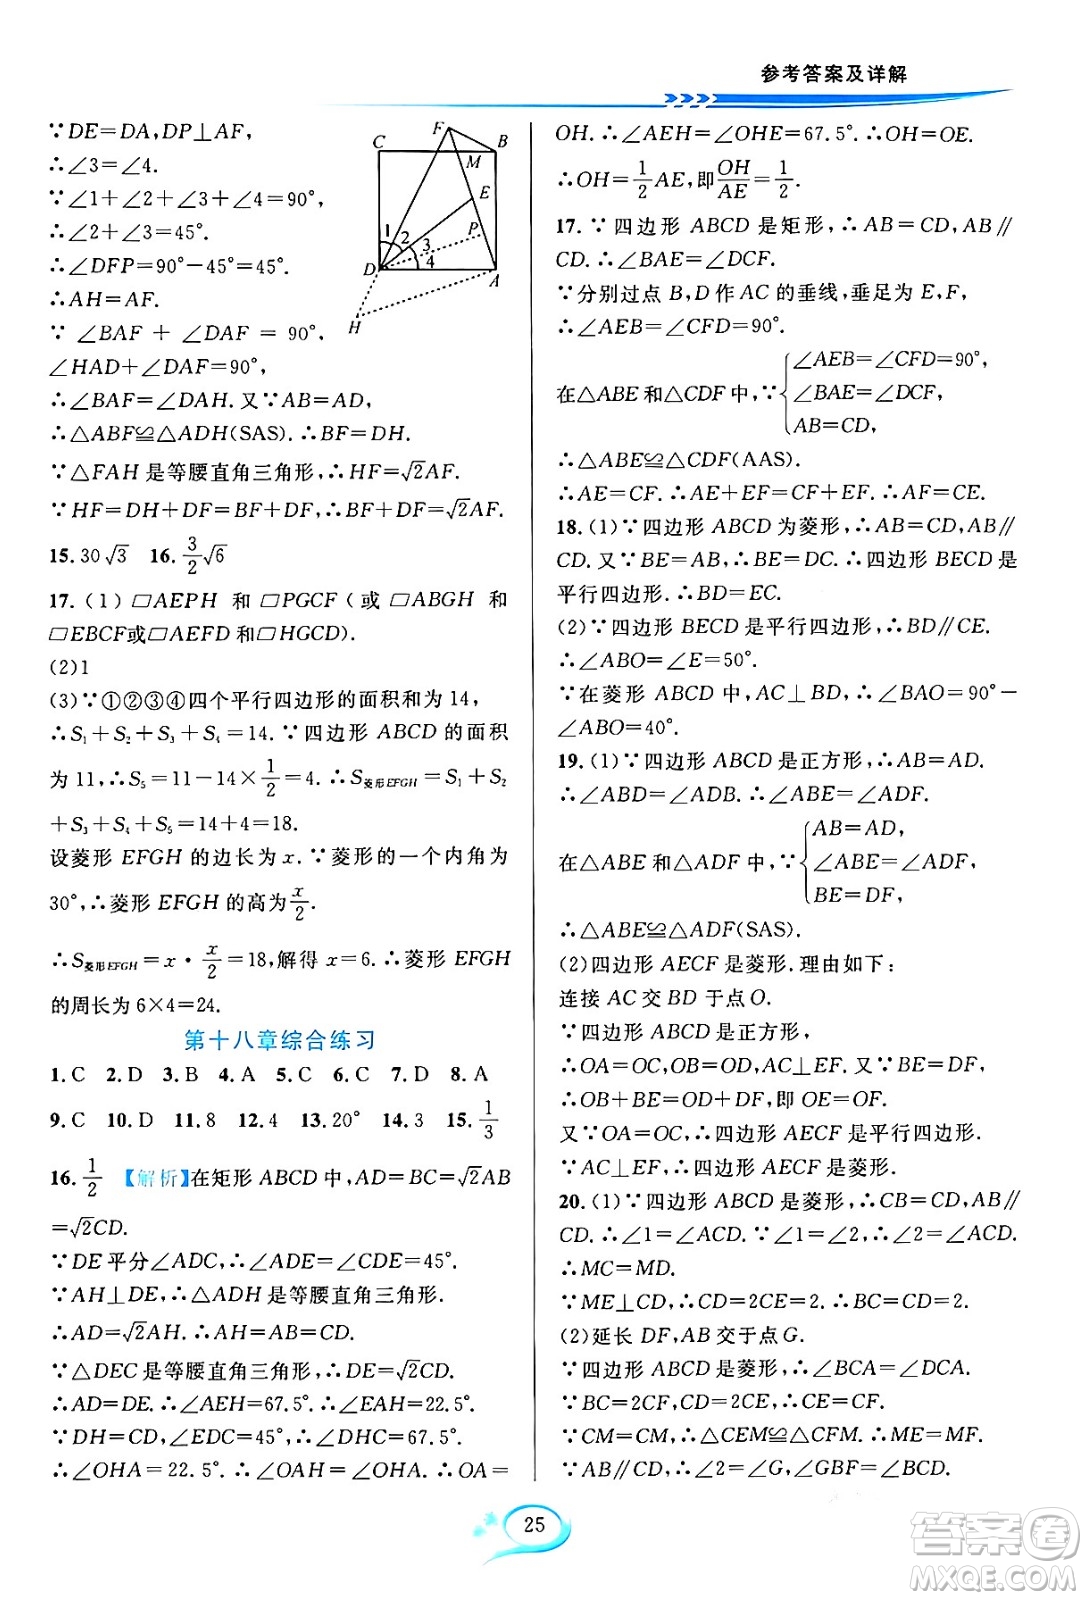 参考答案及详解
∵DE=DA,DP⊥AF,
∴∠3=∠4.
∵∠1+∠2+∠3+∠4=90°,
∴∠2+∠3=45°.
∴∠DFP=90°-45°=45°.
∴AH=AF.
∵∠BAF+∠DAF=90°,
∠HAD+∠DAF=90°,
∴∠BAF=∠DAH.又∵AB=AD,
∴△ABF≌△ADH(SAS).∴BF=DH.
∵△FAH是等腰直角三角形,∴HF=√2AF.
∵HF=DH+DF=BF+DF,∴BF+DF=√2AF.
F
C
B
M
E
P
1
2
3
4
D
A
H
15.30√3 16.3/2√6
17.(1)▱AEPH和▱PGCF(或▱ABGH和
▱EBCF或▱AEFD和▱HGCD).
(2)1
(3)∵①②③④四个平行四边形的面积和为14,
∴S₁+S₂+S₃+S₄=14.∵四边形ABCD的面积
为11,∴S₅=11-14×1/2=4.∴S菱形EFGH=S₁+S₂
+S₃+S₄+S₅=14+4=18.
设菱形EFGH的边长为x.∵菱形的一个内角为
30°,∴菱形EFGH的高为x/2.
∴S菱形EFGH=x·x/2=18,解得x=6.∴菱形EFGH
的周长为6×4=24.
第十八章综合练习
1.C 2.D 3.B 4.A 5.C 6.C 7.D 8.A
9.C 10.D 11.8 12.4 13.20° 14.3 15.1/3
16.1/2 【解析】在矩形ABCD中,AD=BC=√2AB
=√2CD.
∵DE平分∠ADC,∴∠ADE=∠CDE=45°.
∵AH⊥DE,∴△ADH是等腰直角三角形.
∴AD=√2AH.∴AH=AB=CD.
∵△DEC是等腰直角三角形,∴DE=√2CD.
∴AD=DE.∴∠AEH=67.5°.∴∠EAH=22.5°.
∵DH=CD,∠EDC=45°,∴∠DHC=67.5°.
∴∠OHA=22.5°.∴∠OAH=∠OHA.∴OA=
OH.∴∠AEH=∠OHE=67.5°.∴OH=OE.
∴OH=1/2AE,即OH/AE=1/2.
17.∵四边形ABCD是矩形,∴AB=CD,AB∥
CD.∴∠BAE=∠DCF.
∵分别过点B,D作AC的垂线,垂足为E,F,
∴∠AEB=∠CFD=90°.
∠AEB=∠CFD=90°,
在△ABE和△CDF中,∵∠BAE=∠DCF,
AB=CD,
∴△ABE≌△CDF(AAS).
∴AE=CF.∴AE+EF=CF+EF.∴AF=CE.
18.(1)∵四边形ABCD为菱形,∴AB=CD,AB∥
CD.又∵BE=AB,∴BE=DC.∴四边形BECD是
平行四边形.∴BD=EC.
(2)∵四边形BECD是平行四边形,∴BD∥CE.
∴∠ABO=∠E=50°.
∵在菱形ABCD中,AC⊥BD,∴∠BAO=90°-
∠ABO=40°.
19.(1)∵四边形ABCD是正方形,∴AB=AD.
∴∠ABD=∠ADB.∴∠ABE=∠ADF.
AB=AD,
在△ABE和△ADF中,∵∠ABE=∠ADF,
BE=DF,
∴△ABE≌△ADF(SAS).
(2)四边形AECF是菱形.理由如下:
连接AC交BD于点O.
∵四边形ABCD是正方形,
∴OA=OC,OB=OD,AC⊥EF.又∵BE=DF,
∴OB+BE=OD+DF,即OE=OF.
又∵OA=OC,∴四边形AECF是平行四边形.
∵AC⊥EF,∴四边形AECF是菱形.
20.(1)∵四边形ABCD是菱形,∴CB=CD,AB∥
CD.∴∠1=∠ACD.∵∠1=∠2,∴∠2=∠ACD.
∴MC=MD.
∵ME⊥CD,∴CD=2CE=2.∴BC=CD=2.
(2)延长DF,AB交于点G.
∵四边形ABCD是菱形,∴∠BCA=∠DCA.
∵BC=2CF,CD=2CE,∴CE=CF.
∵CM=CM,∴△CEM≌△CFM.∴ME=MF.
∵AB∥CD,∴∠2=∠G,∠GBF=∠BCD.
25
答案卷
MXQE.COM